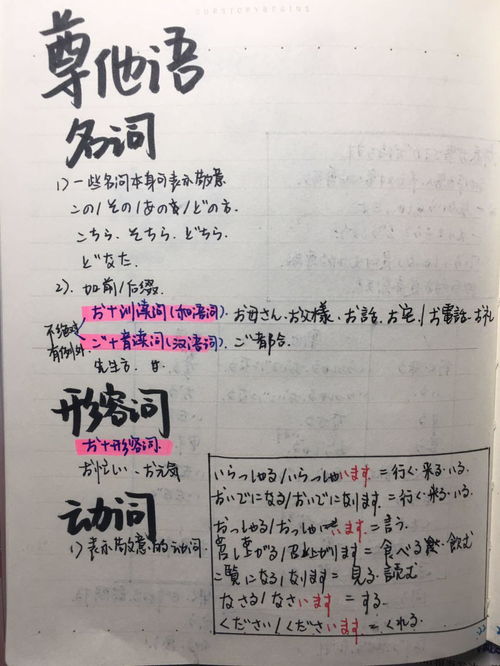 尊他语
名词
1) 一些名词本身可表示敬意
この/その/あの方/どの方.
こちら、そちら、どちら.
どなた.
2). 加前/后缀
お+训读词(和语词). お母さん、お父様、お話、お宅、/お電話、お礼
不绝对
有例外.
ご+音读词(汉语词). ご都合.
先生方.
形容词
お+形容词.
お忙しい、お元気
动词
1) 表示敬意的动词.
いらっしゃる/いらっしゃいます = 行く・来る・いる.
おいでになる/おいでになります = 行く・来る・いる.
おっしゃる/おっしゃいます = 言う.
召し上がる/召し上がります = 食べる・飲む
ご覧になる/なります = 見る・読む
なさる/なさいます = する.
くださる/くださいます = くれる.